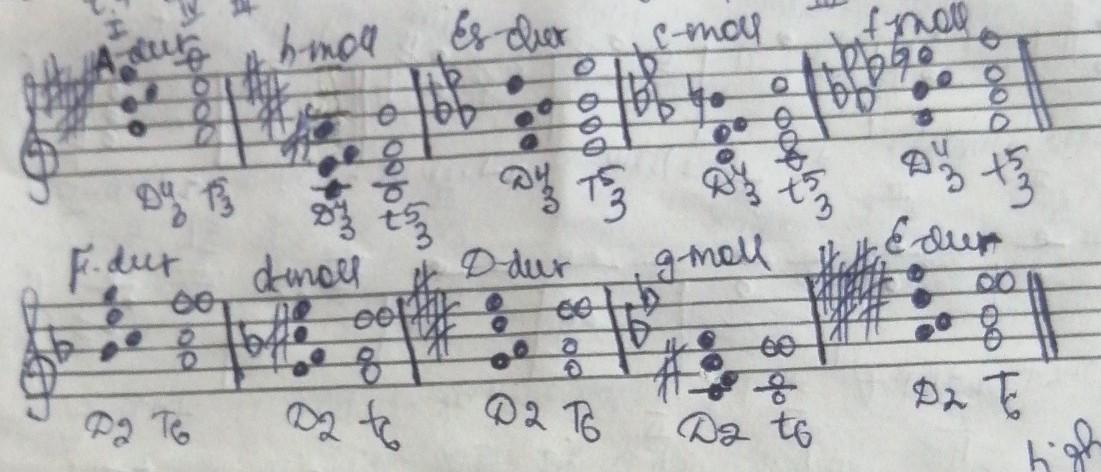 I IV III III
A-dur h-moll Es-dur c-moll f-moll
D4/3 T5/3 D4/3 t5/3 D4/3 T5/3 D4/3 t5/3 D4/3 t5/3
F-dur d-moll D-dur g-moll E-dur
D2 T6 D2 t6 D2 T6 D2 t6 D2 T6